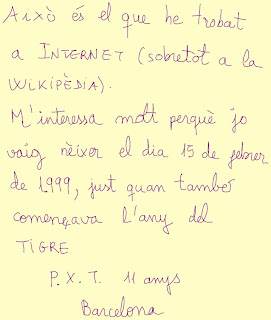 Això és el que he trobat
a INTERNET (sobretot a la
WIKIPÈDIA).
M'interessa molt perquè jo
vaig nèixer el dia 15 de febrer
de 1999, just quan també
començava l'any del
TIGRE
P. X. T. 11 anys
Barcelona